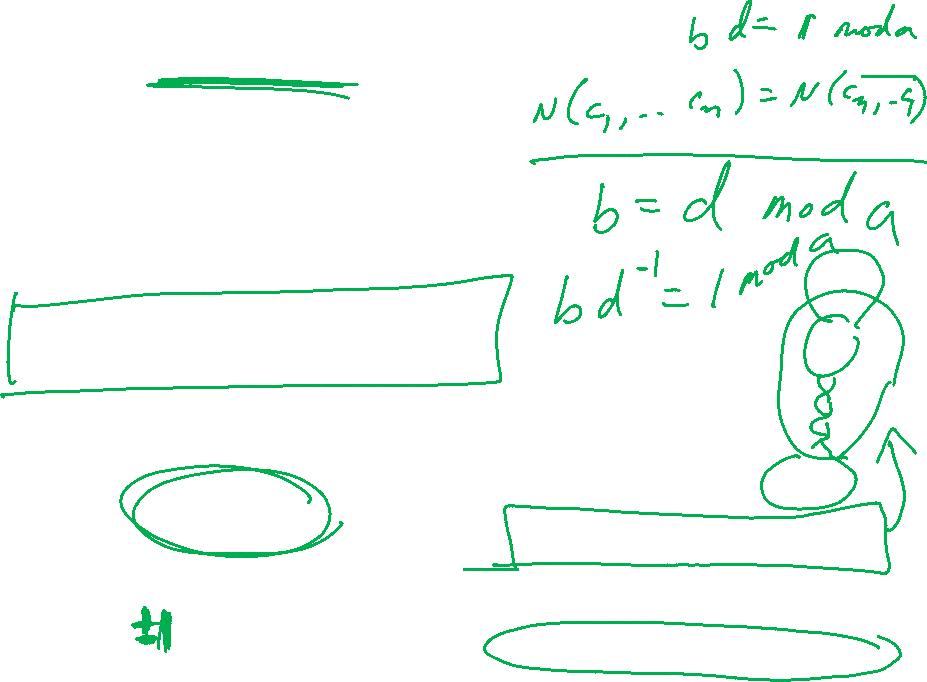 b d = 1 mod a
N(c₁, ... cₘ) = N(cₘ, .. c₁)
b = d mod a
b d⁻¹ = 1 mod a
±1